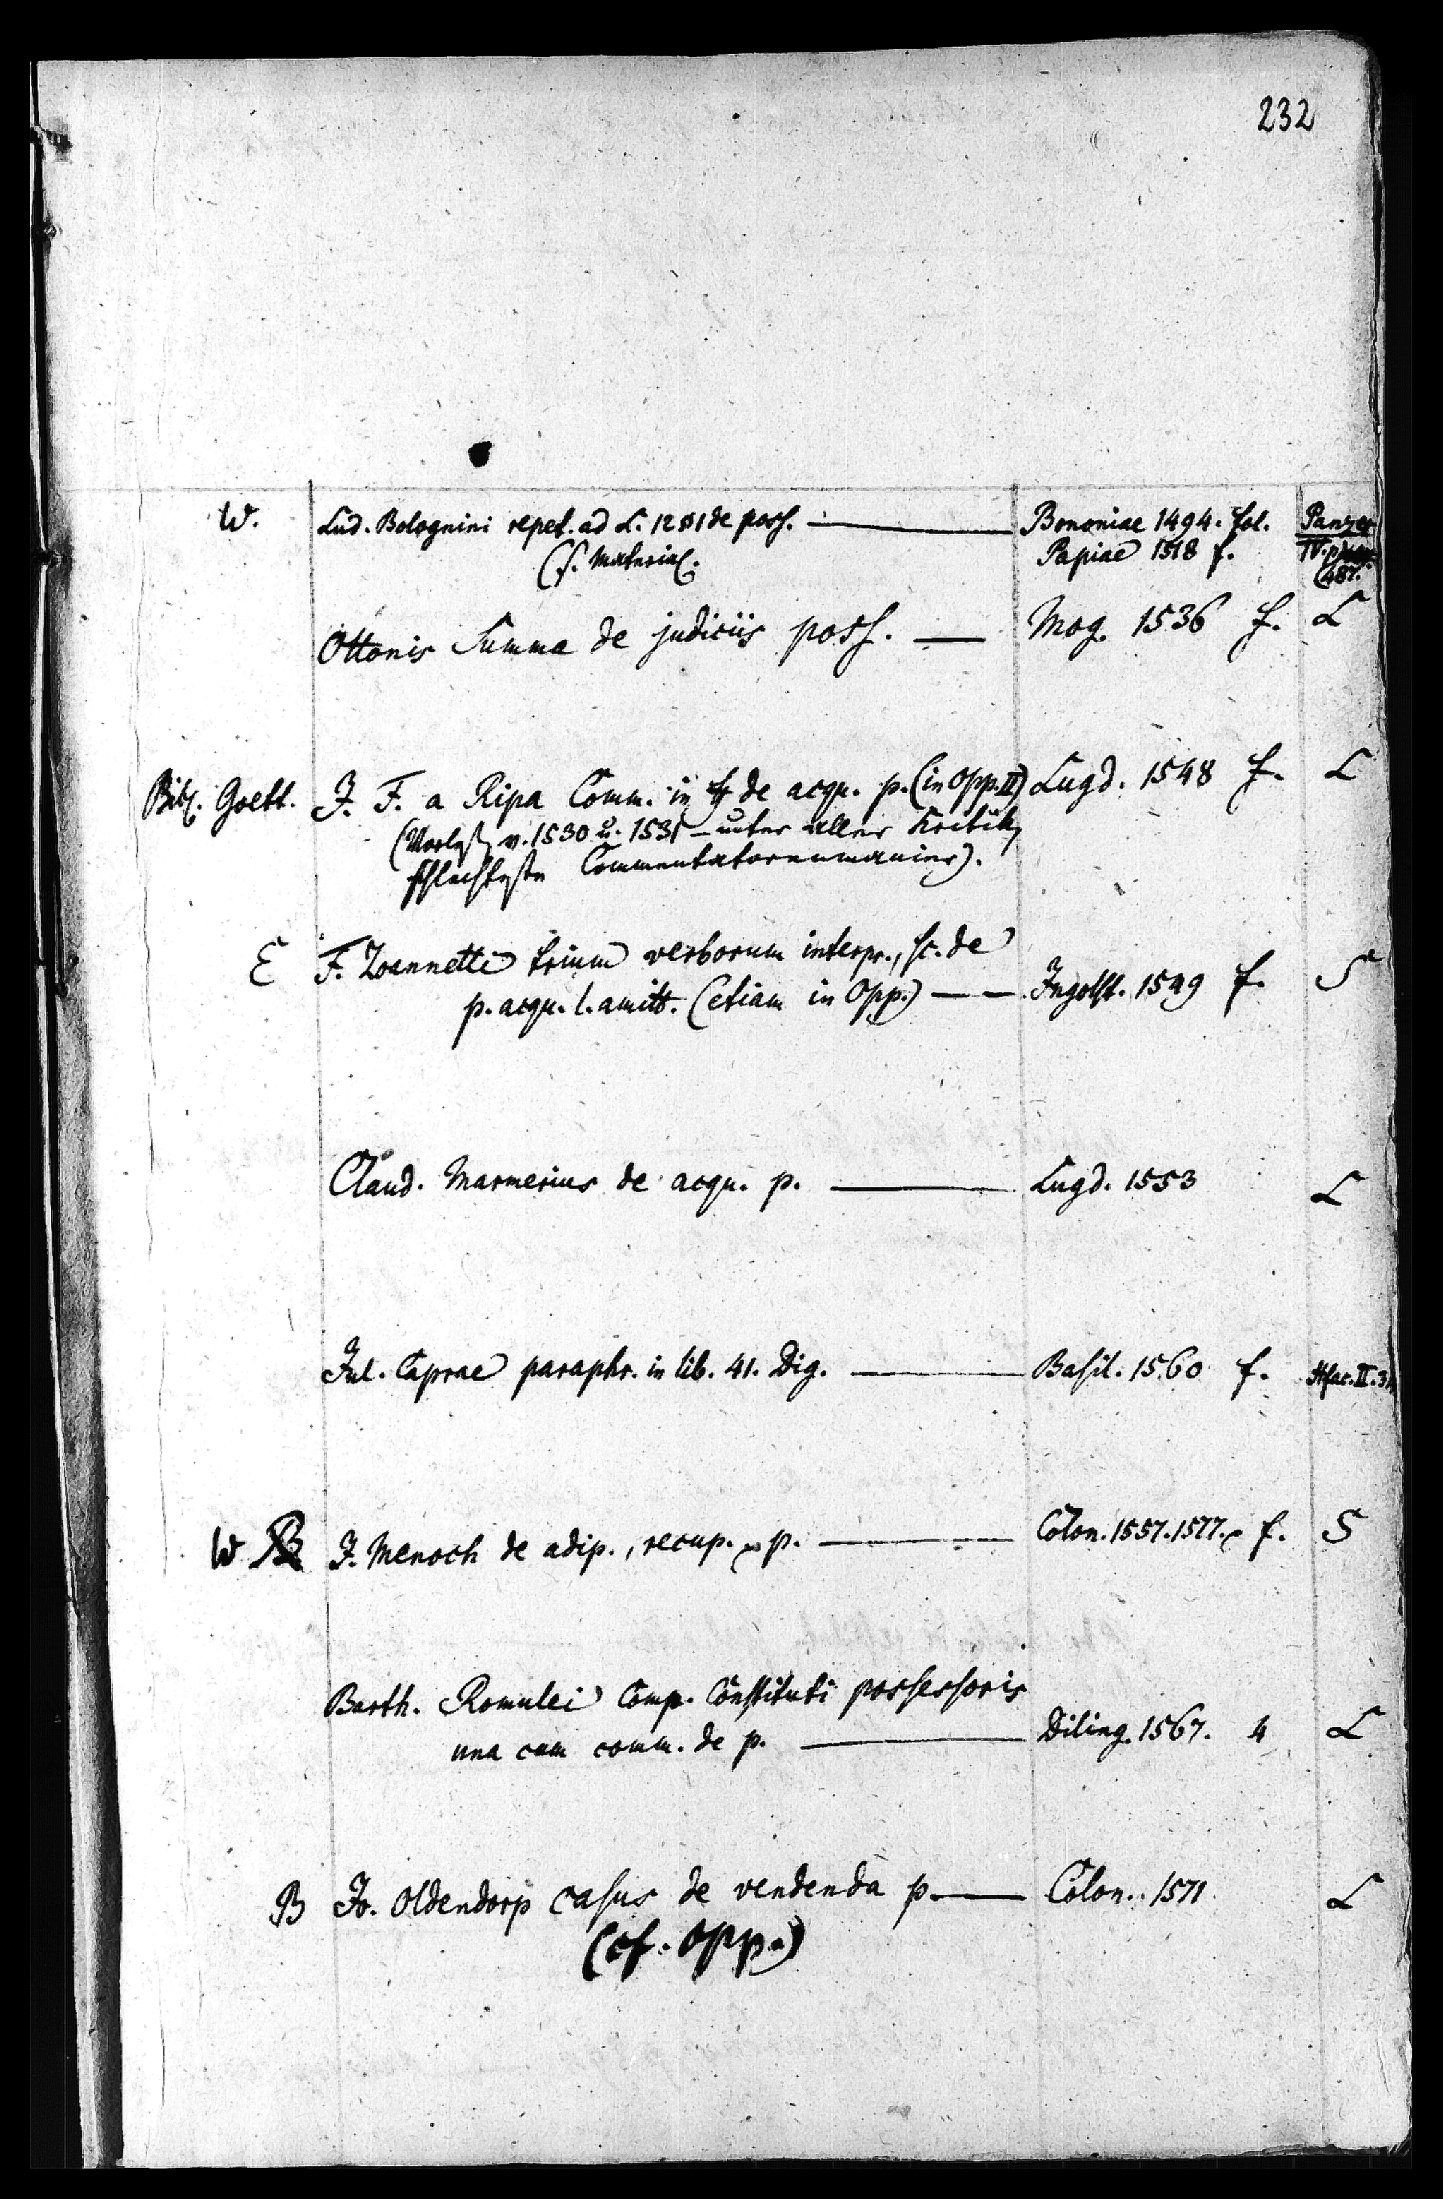 232
W. Lud. Bolognini repet. ad L. 12 §1 de poss. — Bononiae 1494. fol. Panzer
(s. Material. Papiae 1518 f. IV. p.
487.
Ottonis Summa de judiciis poss. — Mog. 1536 f. L
Bibl. Goett. J. F. a Ripa Comm. in tt de acqu. p. (in Opp. II) Lugd. 1548 f. L
(Vorles. v. 1530 u. 1531 – unter aller Kritik,
schlechteste Commentatorenmanier).
E F. Zoannetti trium verborum interpr., sc. de
p. acqu. l. amitt. (etiam in Opp.) — Ingolst. 1549 f. S
Claud. Marmerius de acqu. p. — Lugd. 1553 L
Jul. Caprae paraphr. in lib. 41. Dig. — Basil. 1560 f.
W B J. Menoch de adip., recup. p. — Colon. 1557. 1577. f. S
Barth. Romulei Comp. Constituti possessoris
una cum comm. de p. — Diling. 1567. 4 L
B Jo. Oldendorp casus de vendenda p. — Colon. 1571 L
(cf. Opp.)